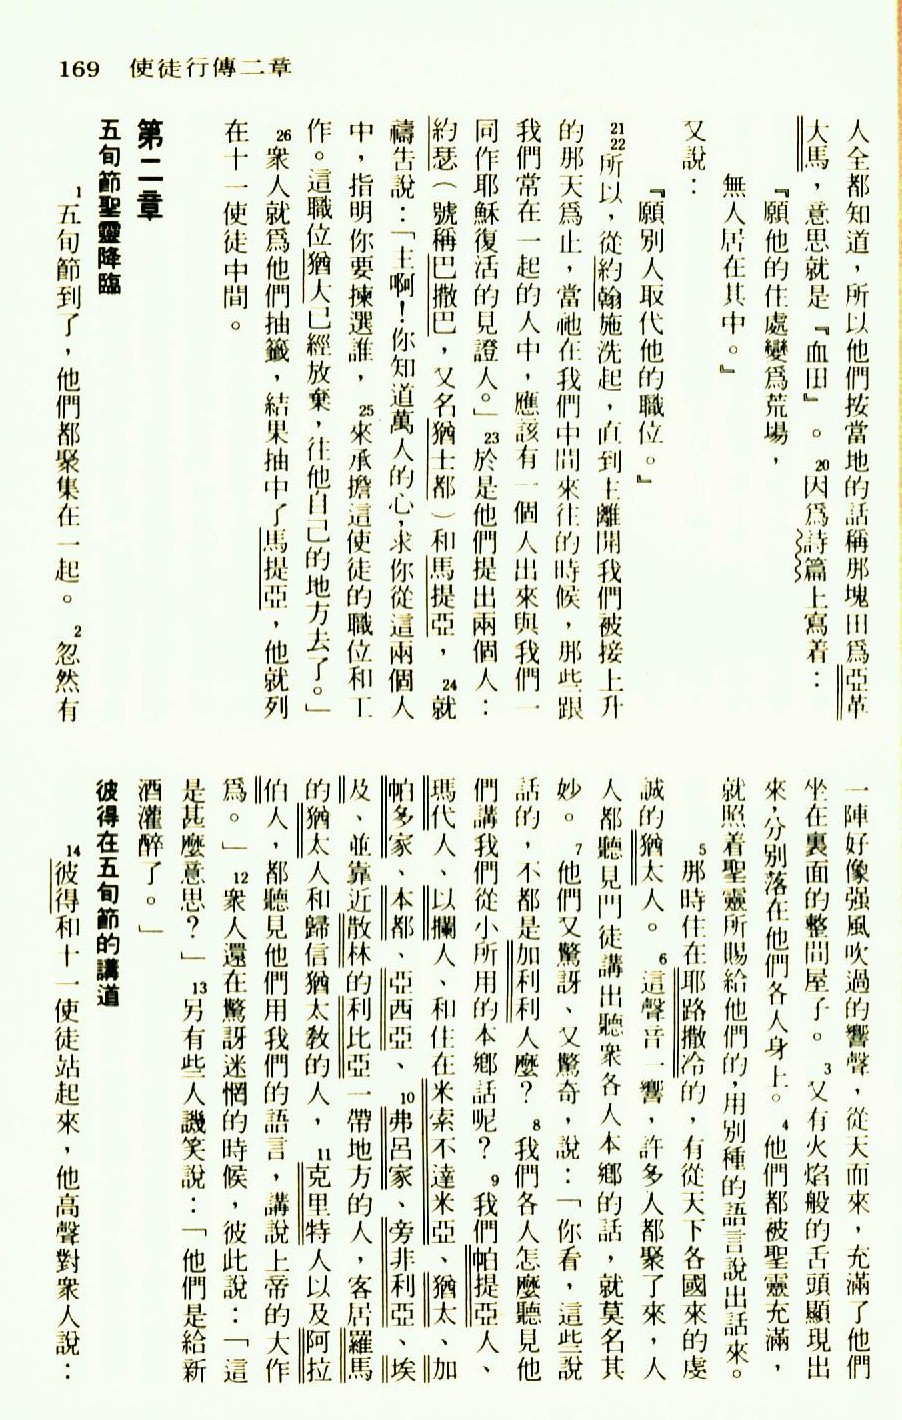 169 使徒行傳二章
人全都知道，所以他們按當地的話稱那塊田爲亞革
大馬，意思就是『血田』。20因爲詩篇上寫着：
『願他的住處變爲荒場，
無人居在其中。』
又說：
『願別人取代他的職位。』
21
22所以，從約翰施洗起，直到主離開我們被接上升
的那天爲止，當祂在我們中間來往的時候，那些跟
我們常在一起的人中，應該有一個人出來與我們一
同作耶穌復活的見證人。」23於是他們提出兩個人：
約瑟（號稱巴撒巴，又名猶士都）和馬提亞，24就
禱吿說：「主啊！你知道萬人的心，求你從這兩個人
中，指明你要揀選誰，25來承擔這使徒的職位和工
作。這職位猶大已經放棄，往他自己的地方去了。」
26衆人就爲他們抽籤，結果抽中了馬提亞，他就列
在十一使徒中間。
第二章
五旬節聖靈降臨
1五旬節到了，他們都聚集在一起。2忽然有
一陣好像强風吹過的響聲，從天而來，充滿了他們
坐在裏面的整間屋子。3又有火焰般的舌頭顯現出
來，分別落在他們各人身上。4他們都被聖靈充滿，
就照着聖靈所賜給他們的，用別種的語言說出話來。
5那時住在耶路撒冷的，有從天下各國來的虔
誠的猶太人。6這聲音一響，許多人都聚了來，人
人都聽見門徒講出聽衆各人本鄉的話，就莫名其
妙。7他們又驚訝、又驚奇，說：「你看，這些說
話的，不都是加利利人麼？8我們各人怎麼聽見他
們講我們從小所用的本鄉話呢？9我們帕提亞人、
瑪代人、以攔人、和住在米索不達米亞、猶太、加
帕多家、本都、亞西亞、10弗呂家、旁非利亞、埃
及、並靠近散林的利比亞一帶地方的人，客居羅馬
的猶太人和歸信猶太教的人，11克里特人以及阿拉
伯人，都聽見他們用我們的語言，講說上帝的大作
爲。」12衆人還在驚訝迷惘的時候，彼此說：「這
是甚麼意思？」13另有些人譏笑說：「他們是給新
酒灌醉了。」
彼得在五旬節的講道
14彼得和十一使徒站起來，他高聲對衆人說：